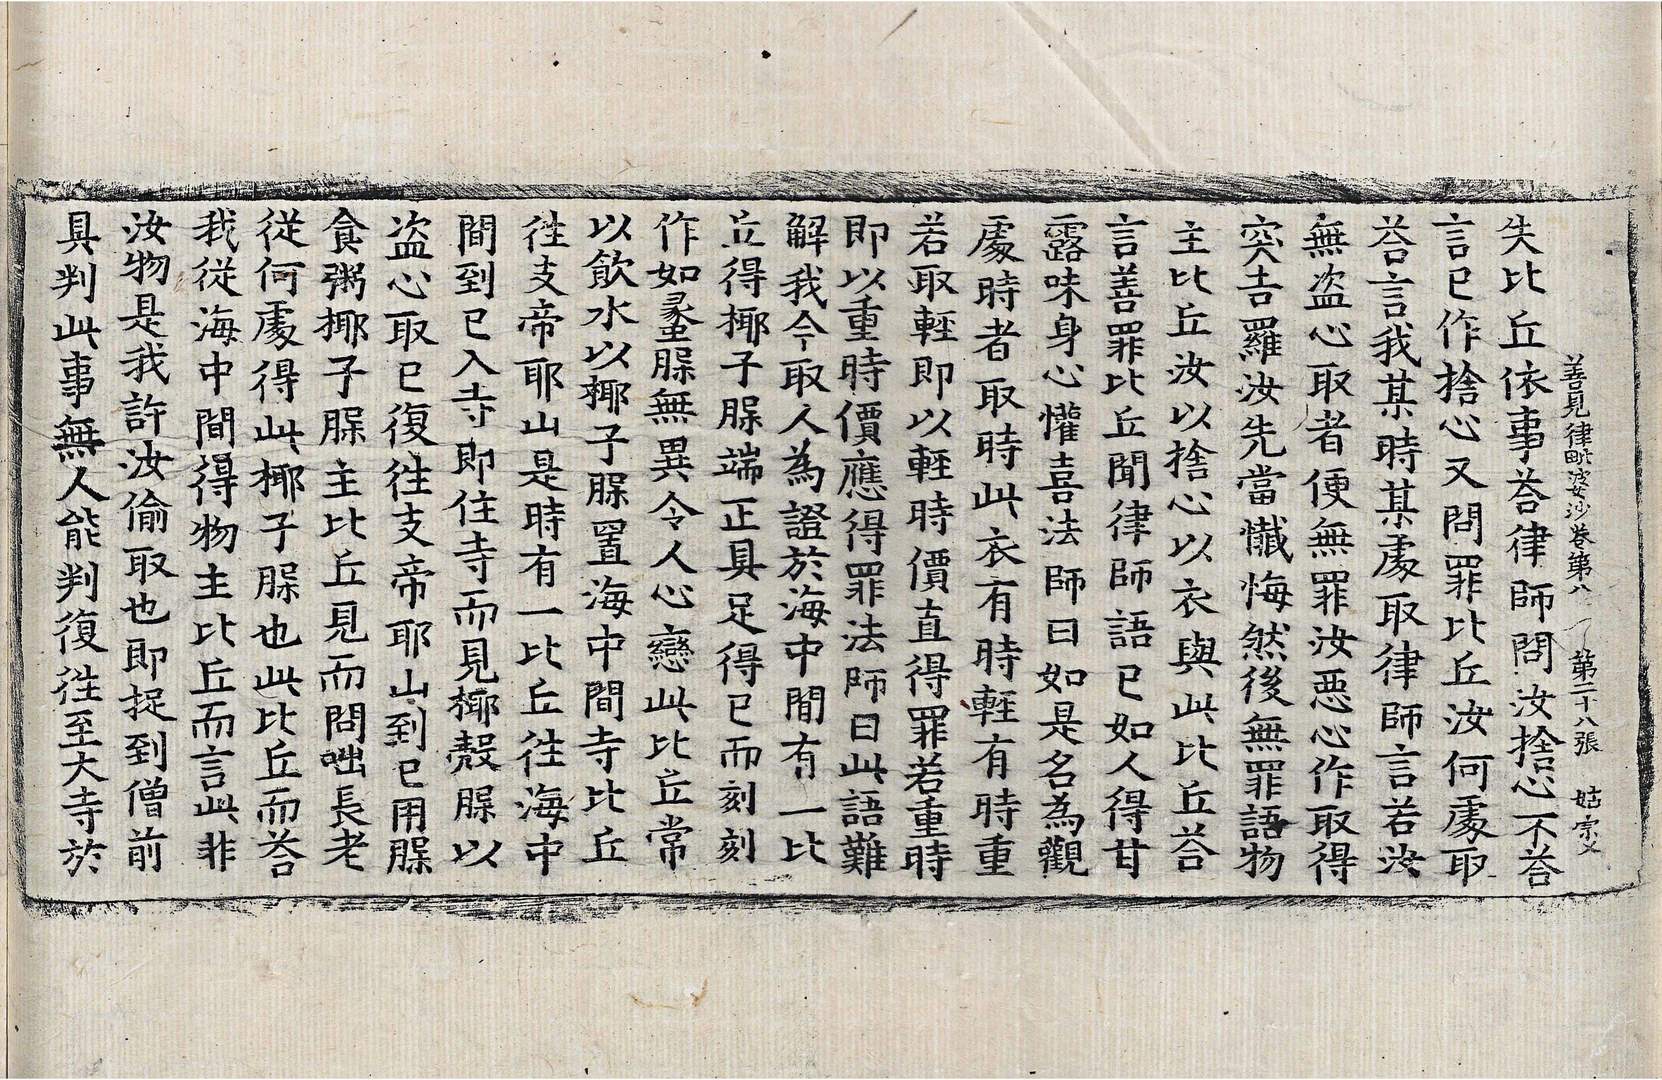 善見律毗婆沙卷第八 第二十八張 姑
失比丘依事荅律師問汝捨心不荅
言已作捨心又問罪比丘汝何處取
荅言我某時某處取律師言若汝
無盗心取者便無罪汝惡心作取得
突吉羅汝先當懺悔然後無罪語物
主比丘汝以捨心以衣與此比丘荅
言善罪比丘聞律師語已如人得甘
露味身心懽喜法師曰如是名為觀
處時者取時此衣有時輕有時重
若取輕即以輕時價直得罪若重時
即以重時價應得罪法師曰此語難
解我今取人為證於海中間有一比
丘得揶子𦞙端正具足得已而刻刻
作如𧎬𦞙無異令人心戀此比丘常
以飲水以揶子𦞙置海中間寺比丘
徃支帝耶山是時有一比丘徃海中
間到已入寺即住寺而見揶㲉𦞙以
盗心取已復徃支帝耶山到已用𦞙
食粥揶子𦞙主比丘見而問咄長老
從何處得此揶子𦞙也此比丘而荅
我從海中間得物主比丘而言此非
汝物是我許汝偷取也即捉到僧前
具判此事無人能判復徃至大寺於